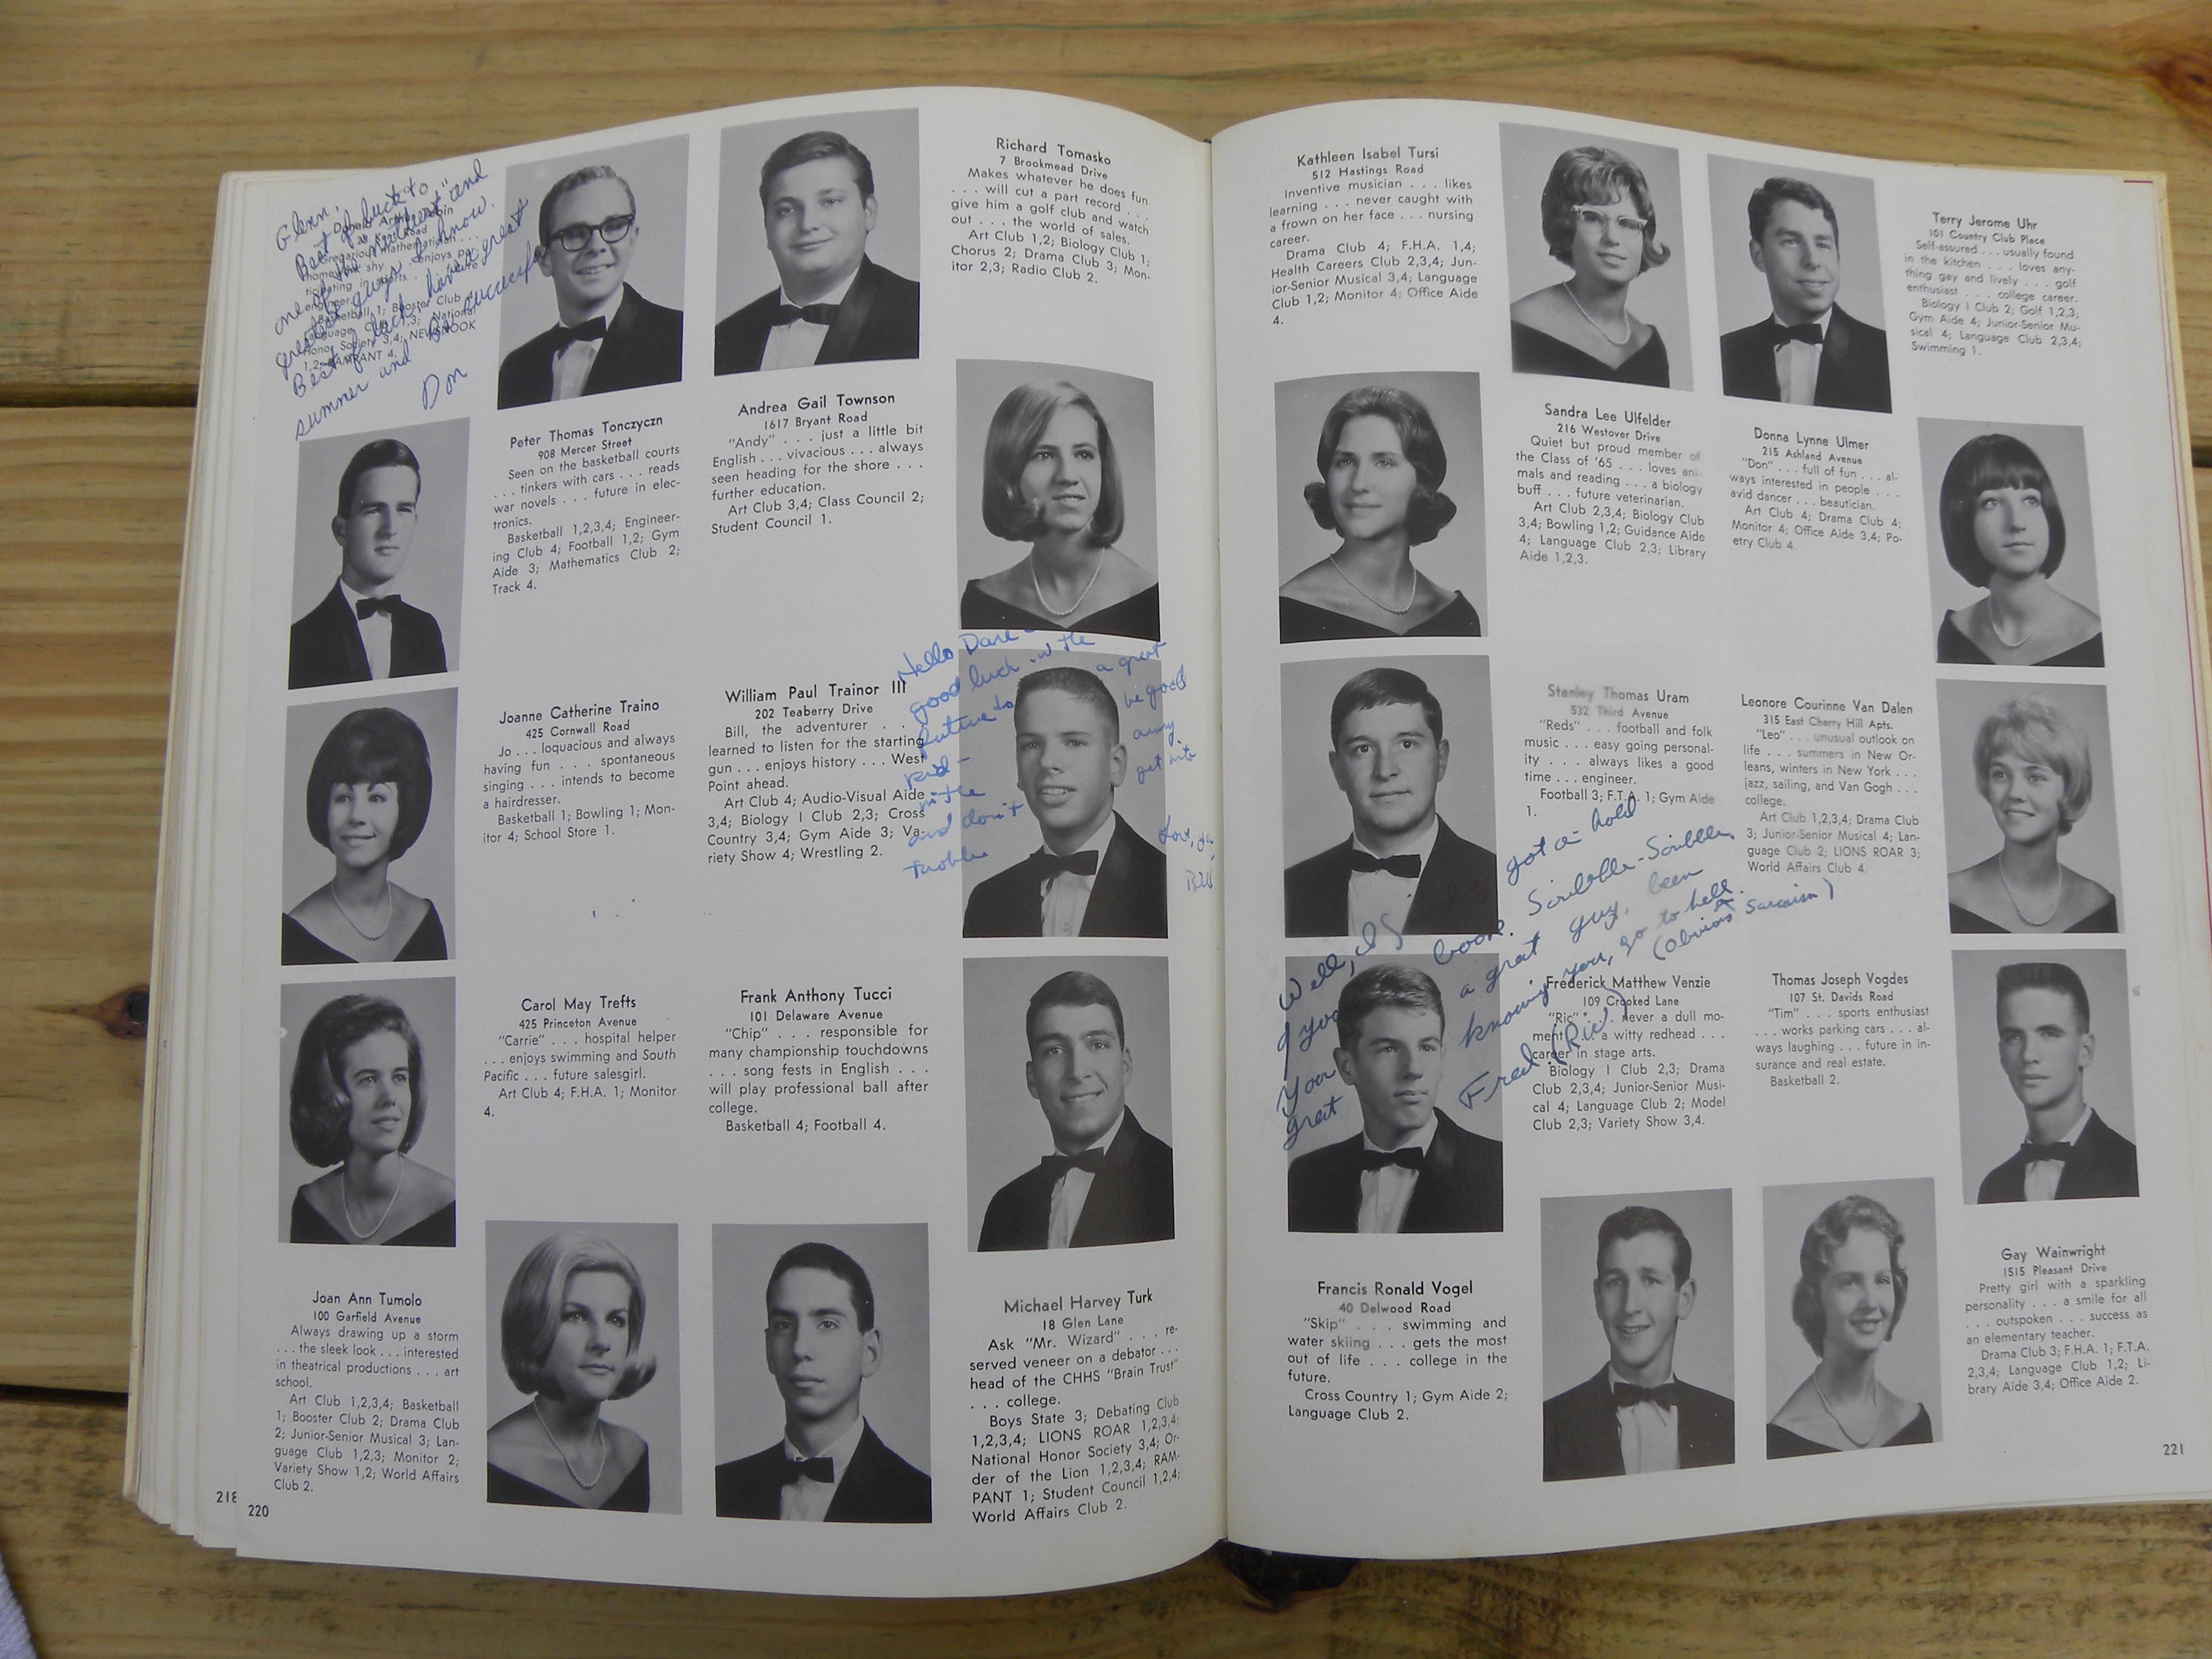 Glenn,
Best of luck to
one of the "smartest" and
greatest guys I know.
Best of luck have a great
summer and be successful
Don
Gregarious mathematician . . .
Honor Society 3,4; NEWSNOOK
Richard Tomasko
7 Brookmead Drive
Makes whatever he does fun
. . . will cut a part record . . .
give him a golf club and watch
out . . . the world of sales.
Art Club 1,2; Biology Club 1;
Chorus 2; Drama Club 3; Mon-
itor 2,3; Radio Club 2.
Peter Thomas Tonczyczn
908 Mercer Street
Seen on the basketball courts
. . . tinkers with cars . . . reads
war novels . . . future in elec-
tronics.
Basketball 1,2,3,4; Engineer-
ing Club 4; Football 1,2; Gym
Aide 3; Mathematics Club 2;
Track 4.
Andrea Gail Townson
1617 Bryant Road
"Andy" . . . just a little bit
English . . . vivacious . . . always
seen heading for the shore . . .
further education.
Art Club 3,4; Class Council 2;
Student Council 1.
Joanne Catherine Traino
425 Cornwall Road
Jo . . . loquacious and always
having fun . . . spontaneous
singing . . . intends to become
a hairdresser.
Basketball 1; Bowling 1; Mon-
itor 4; School Store 1.
William Paul Trainor III
202 Teaberry Drive
Bill, the adventurer . .
learned to listen for the starting
gun . . . enjoys history . . . West
Point ahead.
Art Club 4; Audio-Visual Aide
3,4; Biology I Club 2,3; Cross
Country 3,4; Gym Aide 3; Va-
riety Show 4; Wrestling 2.
Hello Dare
good luck in the
future to a great
kid - be good
in the army
and don't get into
trouble
Love, ya,
Bill
Carol May Trefts
425 Princeton Avenue
"Carrie" . . . hospital helper
. . . enjoys swimming and South
Pacific . . . future salesgirl.
Art Club 4; F.H.A. 1; Monitor
4.
Frank Anthony Tucci
101 Delaware Avenue
"Chip" . . . responsible for
many championship touchdowns
. . . song fests in English . . .
will play professional ball after
college.
Basketball 4; Football 4.
Joan Ann Tumolo
100 Garfield Avenue
Always drawing up a storm
. . . the sleek look . . . interested
in theatrical productions . . . art
school.
Art Club 1,2,3,4; Basketball
1; Booster Club 2; Drama Club
2; Junior-Senior Musical 3; Lan-
guage Club 1,2,3; Monitor 2;
Variety Show 1,2; World Affairs
Club 2.
Michael Harvey Turk
18 Glen Lane
Ask "Mr. Wizard" . . . re-
served veneer on a debator . . .
head of the CHHS "Brain Trust"
. . . college.
Boys State 3; Debating Club
1,2,3,4; LIONS ROAR 1,2,3,4;
National Honor Society 3,4; Or-
der of the Lion 1,2,3,4; RAM-
PANT 1; Student Council 1,2,4;
World Affairs Club 2.
218
220
Kathleen Isabel Tursi
512 Hastings Road
Inventive musician . . . likes
learning . . . never caught with
a frown on her face . . . nursing
career.
Drama Club 4; F.H.A. 1,4;
Health Careers Club 2,3,4; Jun-
ior-Senior Musical 3,4; Language
Club 1,2; Monitor 4; Office Aide
4.
Terry Jerome Uhr
101 Country Club Place
Self-assured . . . usually found
in the kitchen . . . loves any-
thing gay and lively . . . golf
enthusiast . . . college career.
Biology I Club 2; Golf 1,2,3;
Gym Aide 4; Junior-Senior Mu-
sical 4; Language Club 2,3,4;
Swimming 1.
Sandra Lee Ulfelder
216 Westover Drive
Quiet but proud member of
the Class of '65 . . . loves ani-
mals and reading . . . a biology
buff . . . future veterinarian.
Art Club 2,3,4; Biology Club
3,4; Bowling 1,2; Guidance Aide
4; Language Club 2,3; Library
Aide 1,2,3.
Donna Lynne Ulmer
215 Ashland Avenue
"Don" . . . full of fun . . . al-
ways interested in people . . .
avid dancer . . . beautician.
Art Club 4; Drama Club 4;
Monitor 4; Office Aide 3,4; Po-
etry Club 4.
Stanley Thomas Uram
532 Third Avenue
"Reds" . . . football and folk
music . . . easy going personal-
ity . . . always likes a good
time . . . engineer.
Football 3; F.T.A. 1; Gym Aide
1.
Leonore Courinne Van Dalen
315 East Cherry Hill Apts.
"Leo" . . . unusual outlook on
life . . . summers in New Or-
leans, winters in New York . . .
jazz, sailing, and Van Gogh . . .
college.
Art Club 1,2,3,4; Drama Club
3; Junior-Senior Musical 4; Lan-
guage Club 2; LIONS ROAR 3;
World Affairs Club 4.
Well, I got a hold
of your book. Scribble-Scribble
You a great guy, been
great knowing you, go to hell.
(obvious sarcasm)
Fred (Ric)
Frederick Matthew Venzie
109 Crooked Lane
"Ric" . . . never a dull mo-
ment . . . a witty redhead . . .
career in stage arts.
Biology I Club 2,3; Drama
Club 2,3,4; Junior-Senior Musi-
cal 4; Language Club 2; Model
Club 2,3; Variety Show 3,4.
Thomas Joseph Vogdes
107 St. Davids Road
"Tim" . . . sports enthusiast
. . . works parking cars . . . al-
ways laughing . . . future in in-
surance and real estate.
Basketball 2.
Francis Ronald Vogel
40 Delwood Road
"Skip" . . . swimming and
water skiing . . . gets the most
out of life . . . college in the
future.
Cross Country 1; Gym Aide 2;
Language Club 2.
Gay Wainwright
1515 Pleasant Drive
Pretty girl with a sparkling
personality . . . a smile for all
. . . outspoken . . . success as
an elementary teacher.
Drama Club 3; F.H.A. 1; F.T.A.
2,3,4; Language Club 1,2; Li-
brary Aide 3,4; Office Aide 2.
221